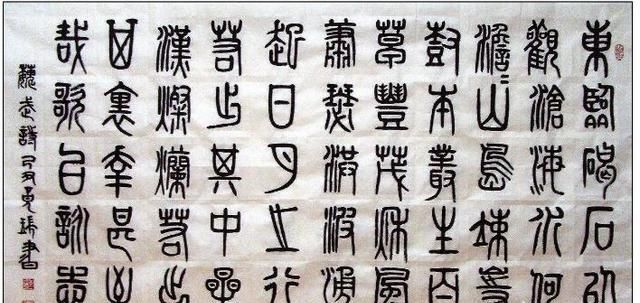 東臨碣石以
觀滄海水何
澹〻山島竦峙
樹木叢生百
草豐茂秋風
蕭瑟洪波涌
起日月之行
若出其中星
漢燦爛若出
其裏幸甚至
哉歌以詠志
魏武詩 書